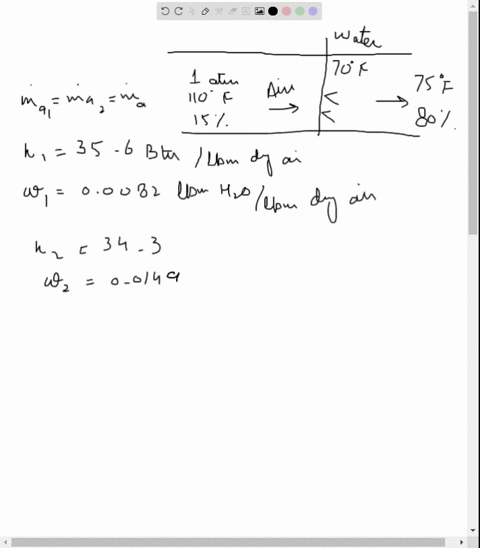 Water
70°F
1 atm
110°F
15%
Air
75°F
80%
ṁa1 = ṁa2 = ṁa
h1 = 35.6 Btu / lbm dry air
ω1 = 0.0082 lbm H2O / lbm dry air
h2 = 34.3
ω2 = 0.0149